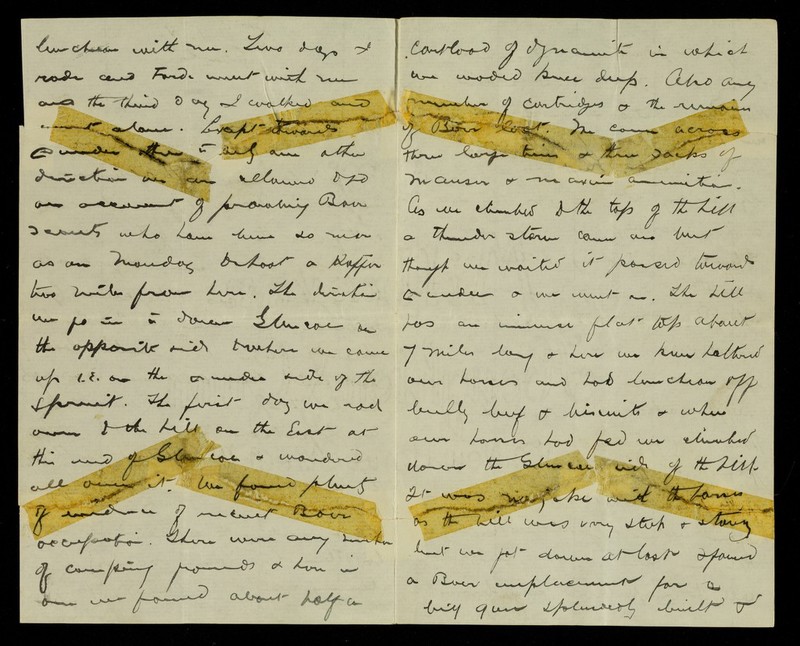 luncheon with me. Two days I
rode and Forde went with me
and the third day I walked and
went alone. Except towards
Dundee this is only one other
direction we are allowed to go
on account of prowling Boer
Scouts who have been so near
as on Monday to shoot a Kaffir
two miles from here. The direction
we go in is down Glencoe on
the opposite side to where we came
up i.e. on the Dundee side of the
Spruit. The first day we rode
over to the hill on the East at
this end of Glencoe & wandered
all over it. We found plenty
of evidence of recent Boer
occupation. There were any number
of camping grounds & here in
one we found about half a
cartload of dynamite in which
we waded knee deep. Also any
number of cartridges & the remains
of Boer loot. We came across
three large tins & three sacks of
Mauser & Maxim ammunition.
As we climbed to the top of the hill
a thunder storm came on but
though we waited it passed towards
Dundee & we went on. The hill
has an immense flat top about
7 miles long & here we knee haltered
our horses and had luncheon off
bully beef & biscuits & when
our horses had fed we climbed
down the Glencoe side of the hill.
It was no joke with the horses
as the hill was very steep & stony
but we got down at last & found
a Boer emplacement for a
big gun splendidly built &